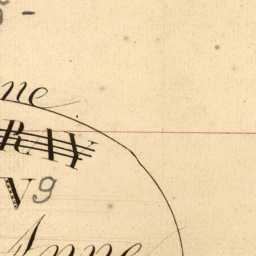 ne
RAY
V9
Anne